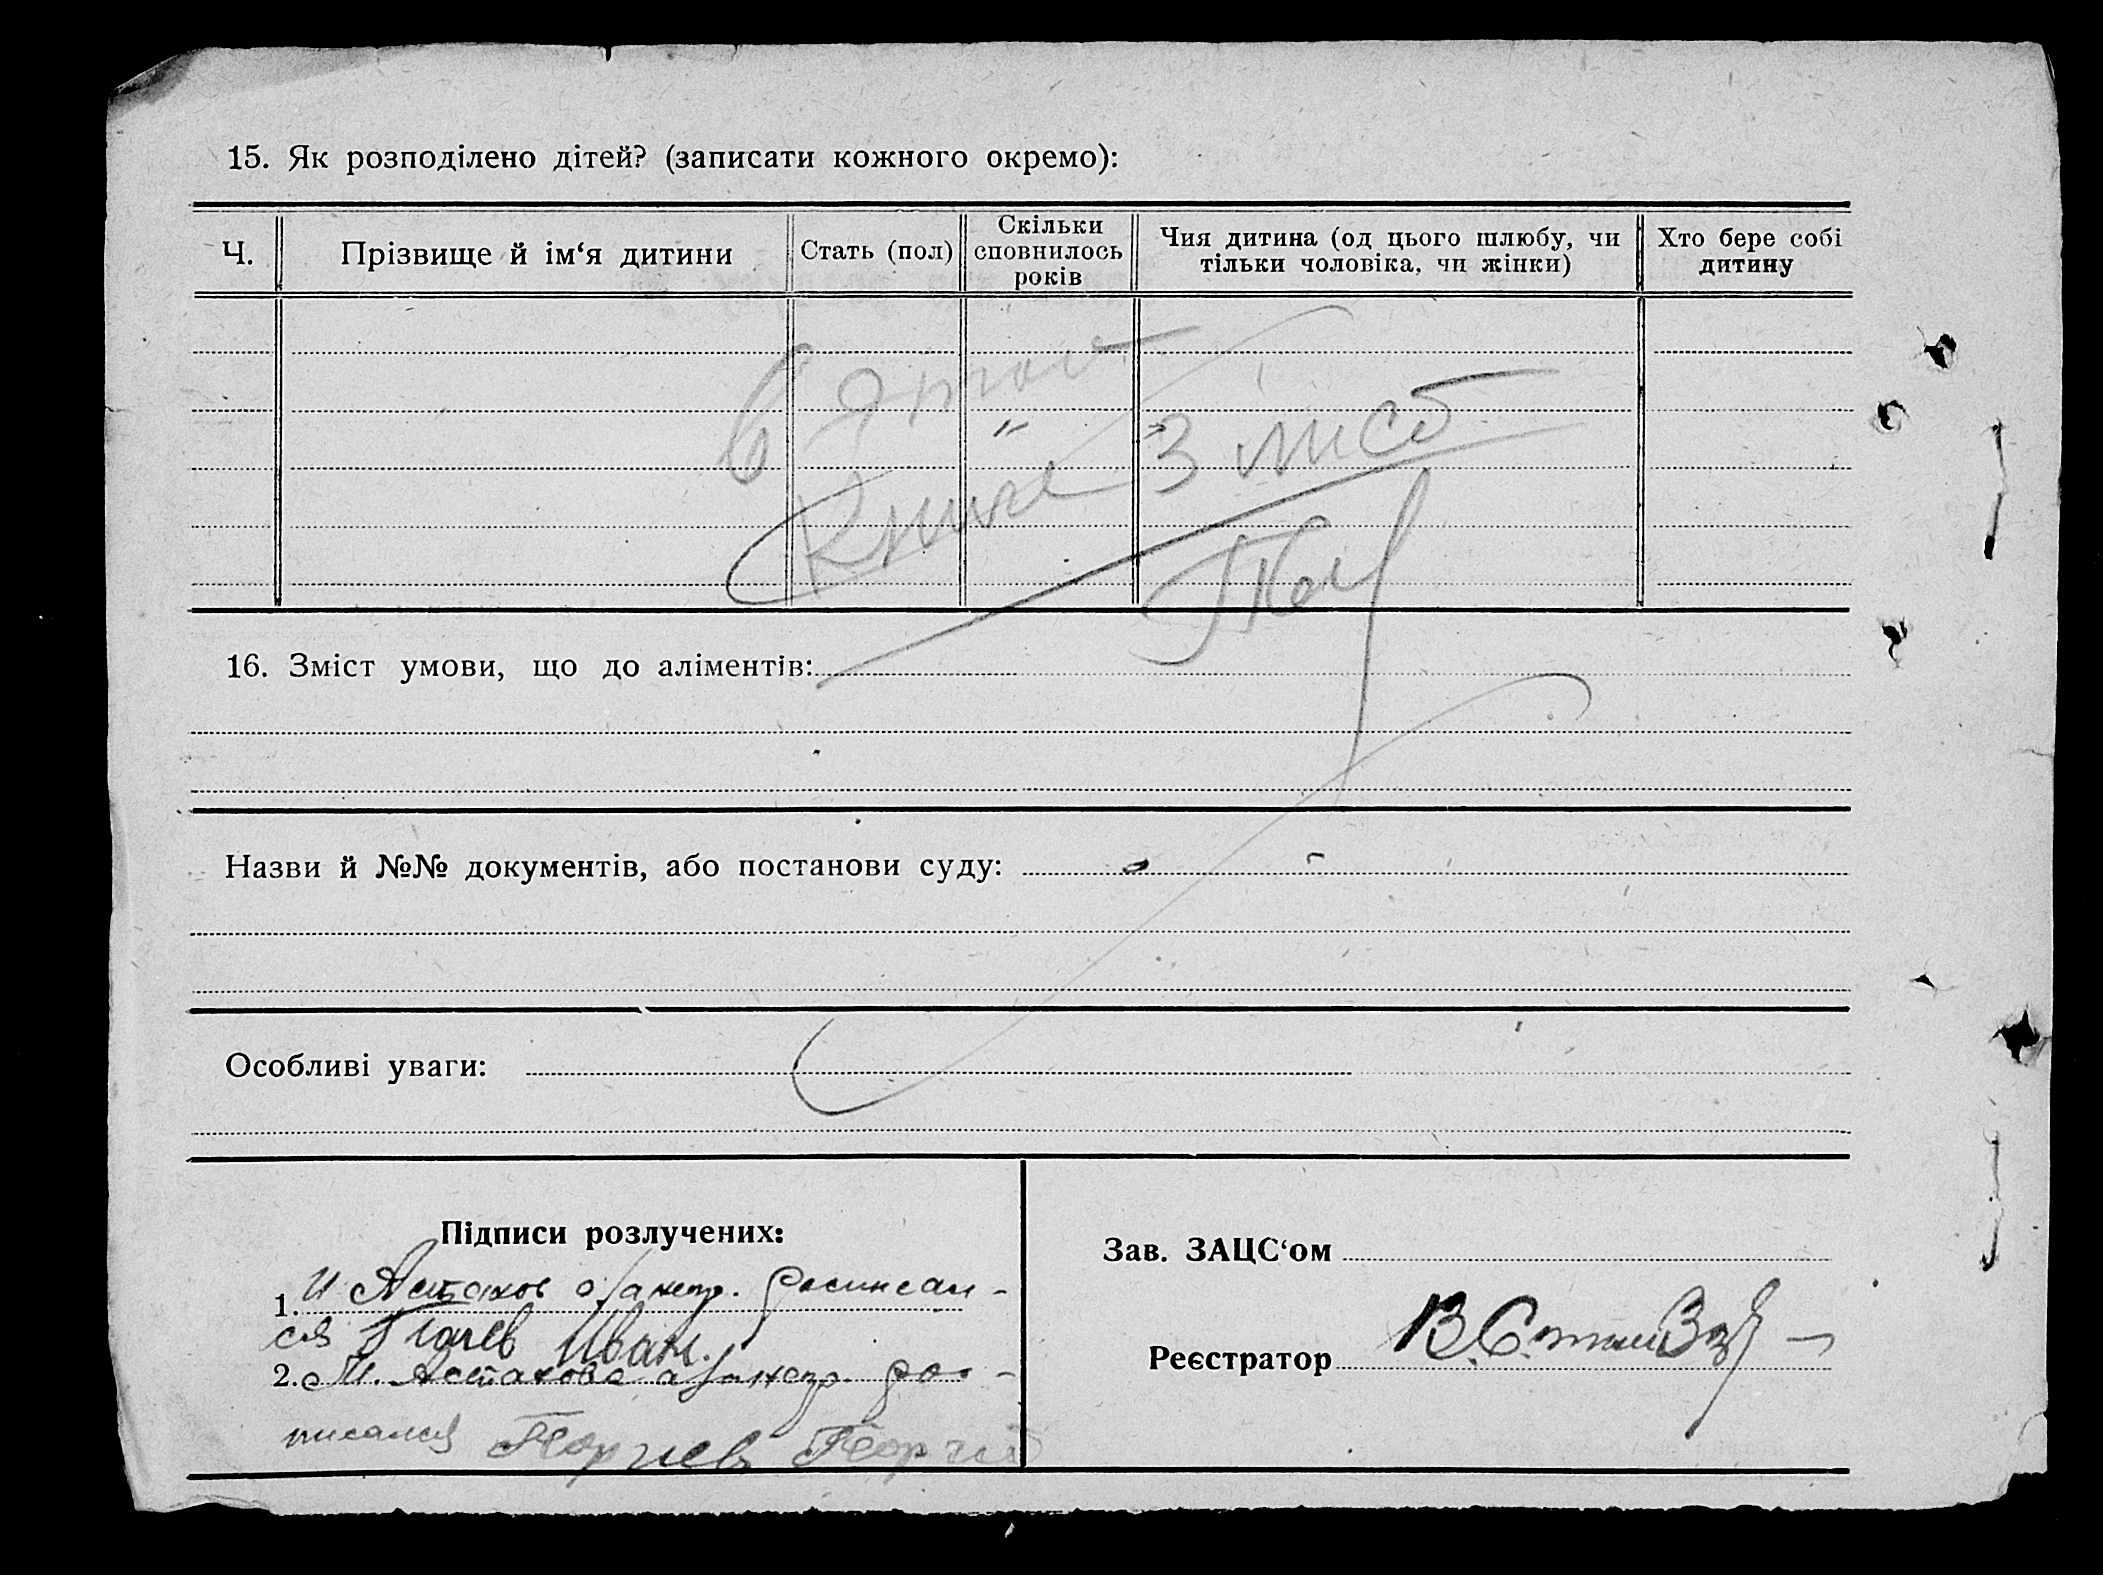 15. Як розподілено дітей? (записати кожного окремо):
Ч.
Прізвище й ім‘я дитини
Стать (пол)
Скільки
сповнилось
років
Чия дитина (од цього шлюбу, чи
тільки чоловіка, чи жінки)
Хто бере собі
дитину
В этой
книге 3 лист
16. Зміст умови, що до аліментів:
Назви й №№ документів, або постанови суду:
Особливі уваги:
Підписи розлучених:
1. И Астахов а/за негр. росписал-
ся Ткачев Иван.
2. М. Астахова а за негр. рос-
писался Георгиев Георгий
Зав. ЗАЦС‘ом
Реєстратор